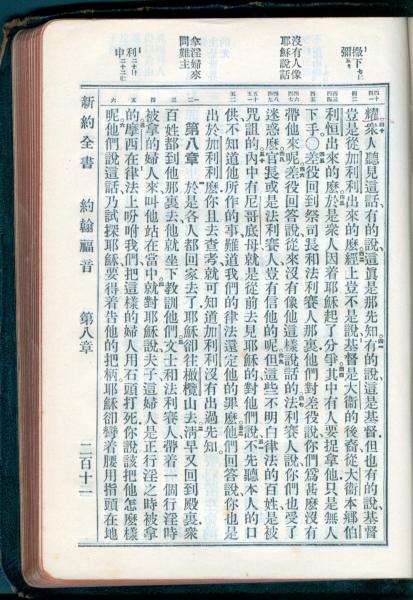 撒下七
彌五
沒有人像
耶穌說話
拿淫婦來
問難主
利二十
申二十二
耀衆人聽見這話有的說這眞是那先知有的說這是基督但也有的說基督
豈是從加利利出來的麼經上豈不是說基督是大衞的後裔從大衞本鄉伯
利恒出來的麼於是衆人因着耶穌起了分爭其中有人要捉拿他只是無人
下手○差役回到祭司長和法利賽人那裏他們對差役說你們爲甚麼沒有
帶他來呢差役回答說從來沒有像他這樣說話的法利賽人說你們也受了
迷惑麼官長或是法利賽人豈有信他的呢但這些不明白律法的百姓是被
咒詛的內中有尼哥底母就是從前去見耶穌的對他們說不先聽本人的口
供不知道他所作的事難道我們的律法還定他的罪麼他們回答說你也是
出於加利利麼你且去查考就可知道加利利沒有出過先知
第八章 於是各人都回家去了耶穌卻往橄欖山去淸早又回到殿裏衆
百姓都到他那裏去他就坐下教訓他們文士和法利賽人帶着一個行淫時
被拿的婦人來叫他站在當中就對耶穌說夫子這婦人是正行淫之時被拿
的摩西在律法上吩咐我們把這樣的婦人用石頭打死你說該把他怎麼樣
呢他們說這話乃試探耶穌要得着告他的把柄耶穌卻彎着腰用指頭在地
新約全書 約翰福音 第八章 二百十一